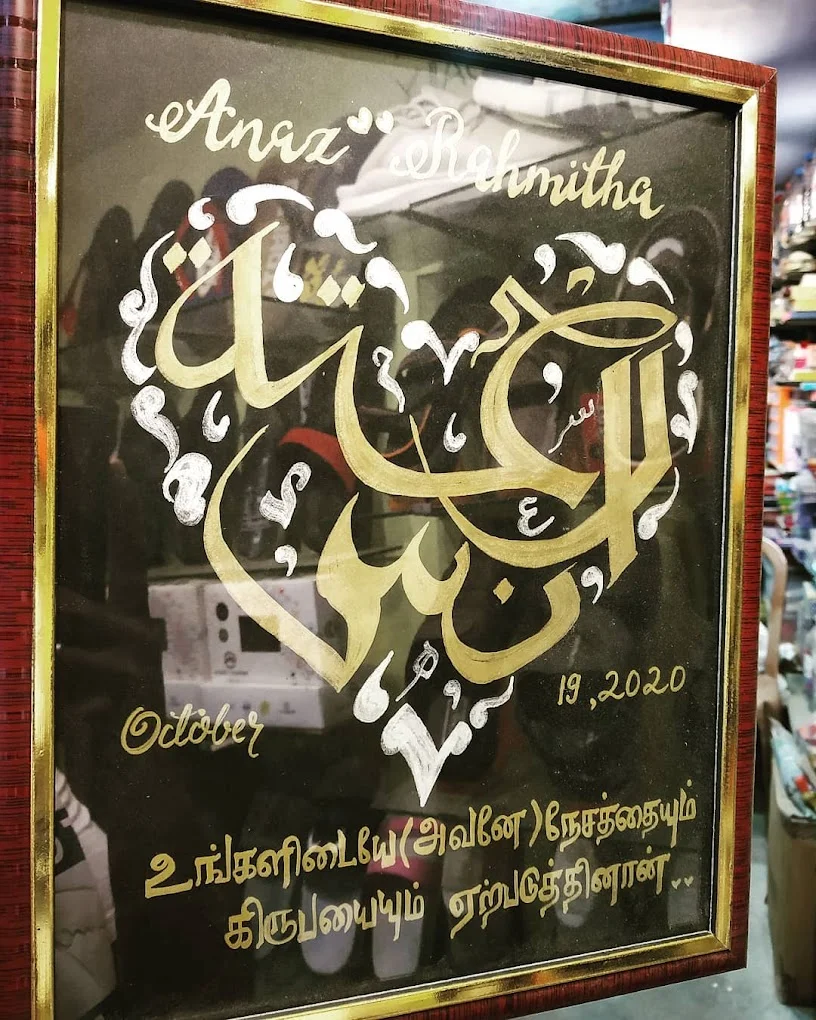 Anaz Rahmitha
October 19, 2020
உங்களிடையே(அவனே)நேசத்தையும்
கிருபயையும் ஏற்படுத்தினான்..